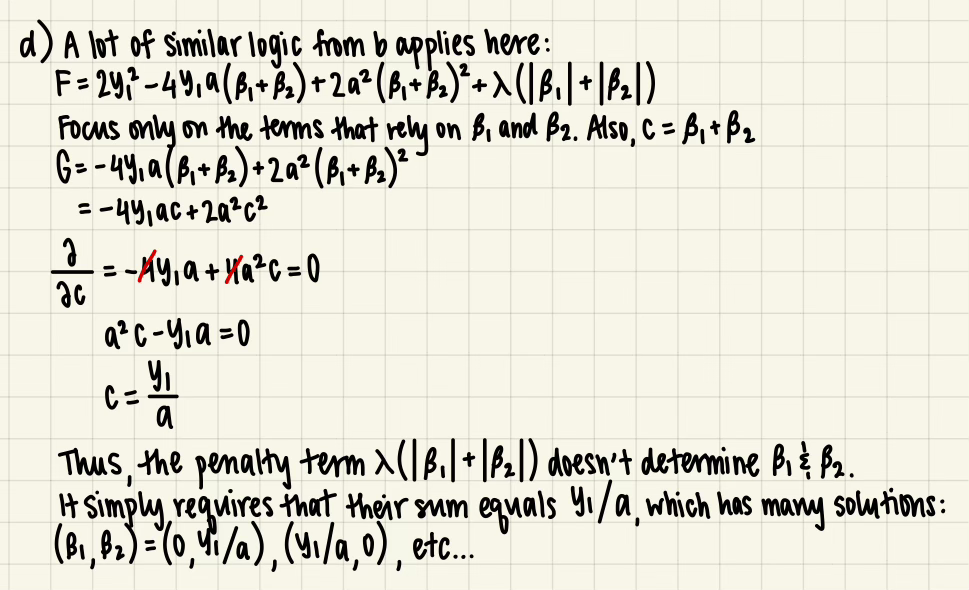 d) A lot of similar logic from b applies here:
F = 2y₁² - 4y₁a(β₁+β₂) + 2a²(β₁+β₂)² + λ(|β₁| + |β₂|)
Focus only on the terms that rely on β₁ and β₂. Also, c = β₁+β₂
G = -4y₁a(β₁+β₂) + 2a²(β₁+β₂)²
= -4y₁ac + 2a²c²
∂/∂c = -4y₁a + 4a²c = 0
a²c - y₁a = 0
c = y₁/a
Thus, the penalty term λ(|β₁| + |β₂|) doesn't determine β₁ & β₂.
It simply requires that their sum equals y₁/a, which has many solutions:
(β₁, β₂) = (0, y₁/a), (y₁/a, 0), etc...